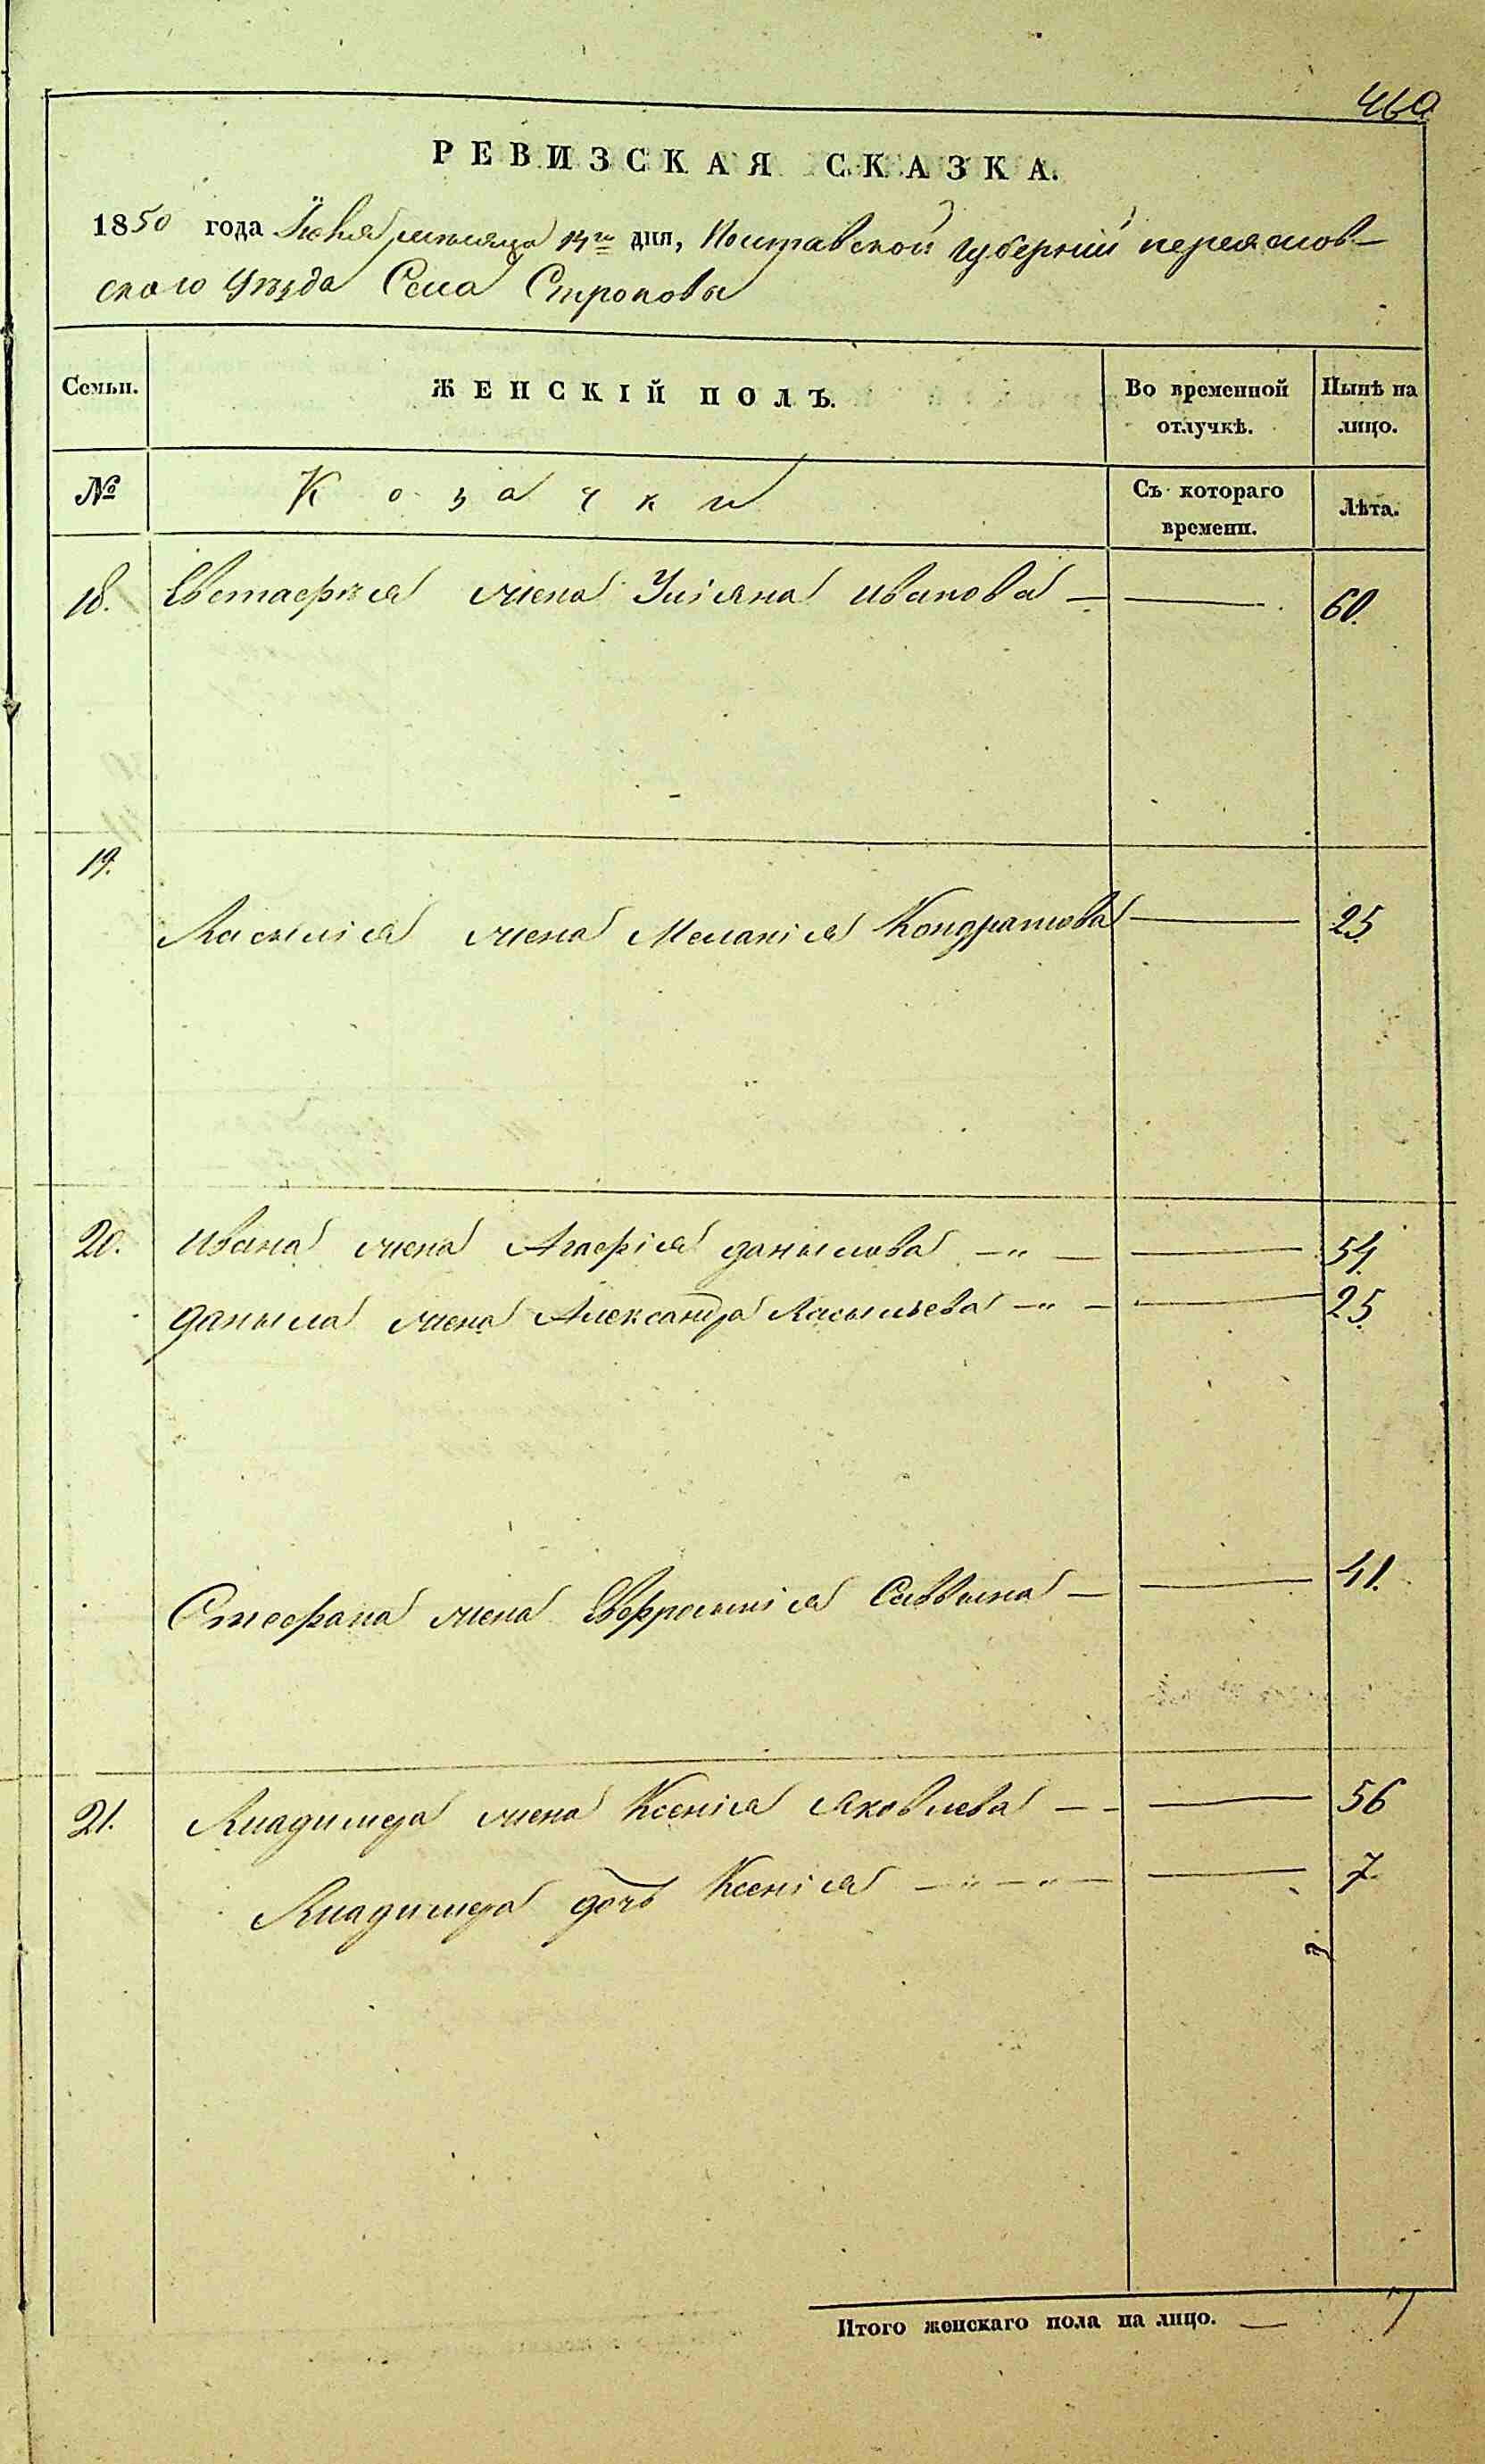 460
РЕВИЗСКАЯ СКАЗКА.
1850 года Іюня месяца дня, Полтавской губерніи переяслов-
ского уѣзда Села Строковы
Семьи.
ЖЕНСКІЙ ПОЛЪ.
Во временной отлучкѣ.
Нынѣ на лицо.
№
Козачки
Съ котораго времени.
Лѣта.
18. Евстафія жена Уліяна иванова — — 60.
19.
Василія жена Меланія Кондратова — 25
20. ивана жена Агафія данылова — „ — — 54.
даныла жена Александра Васыльева — „ — — 25.
Стефана жена Евфросинія Саввына — — 41.
21. Владимера жена Ксенія яковлева — — — 56
Владимера дочь Ксенія — „ — „ — — 7
Итого женскаго пола на лицо. — 7